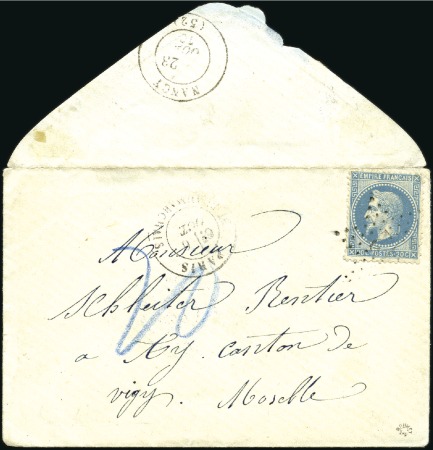 NANCY
28
(52)
EMPIRE FRANÇAIS
POSTES
PARIS
Monsieur
Schleiter Rentier
a Hy. canton de
vigy. Moselle
20